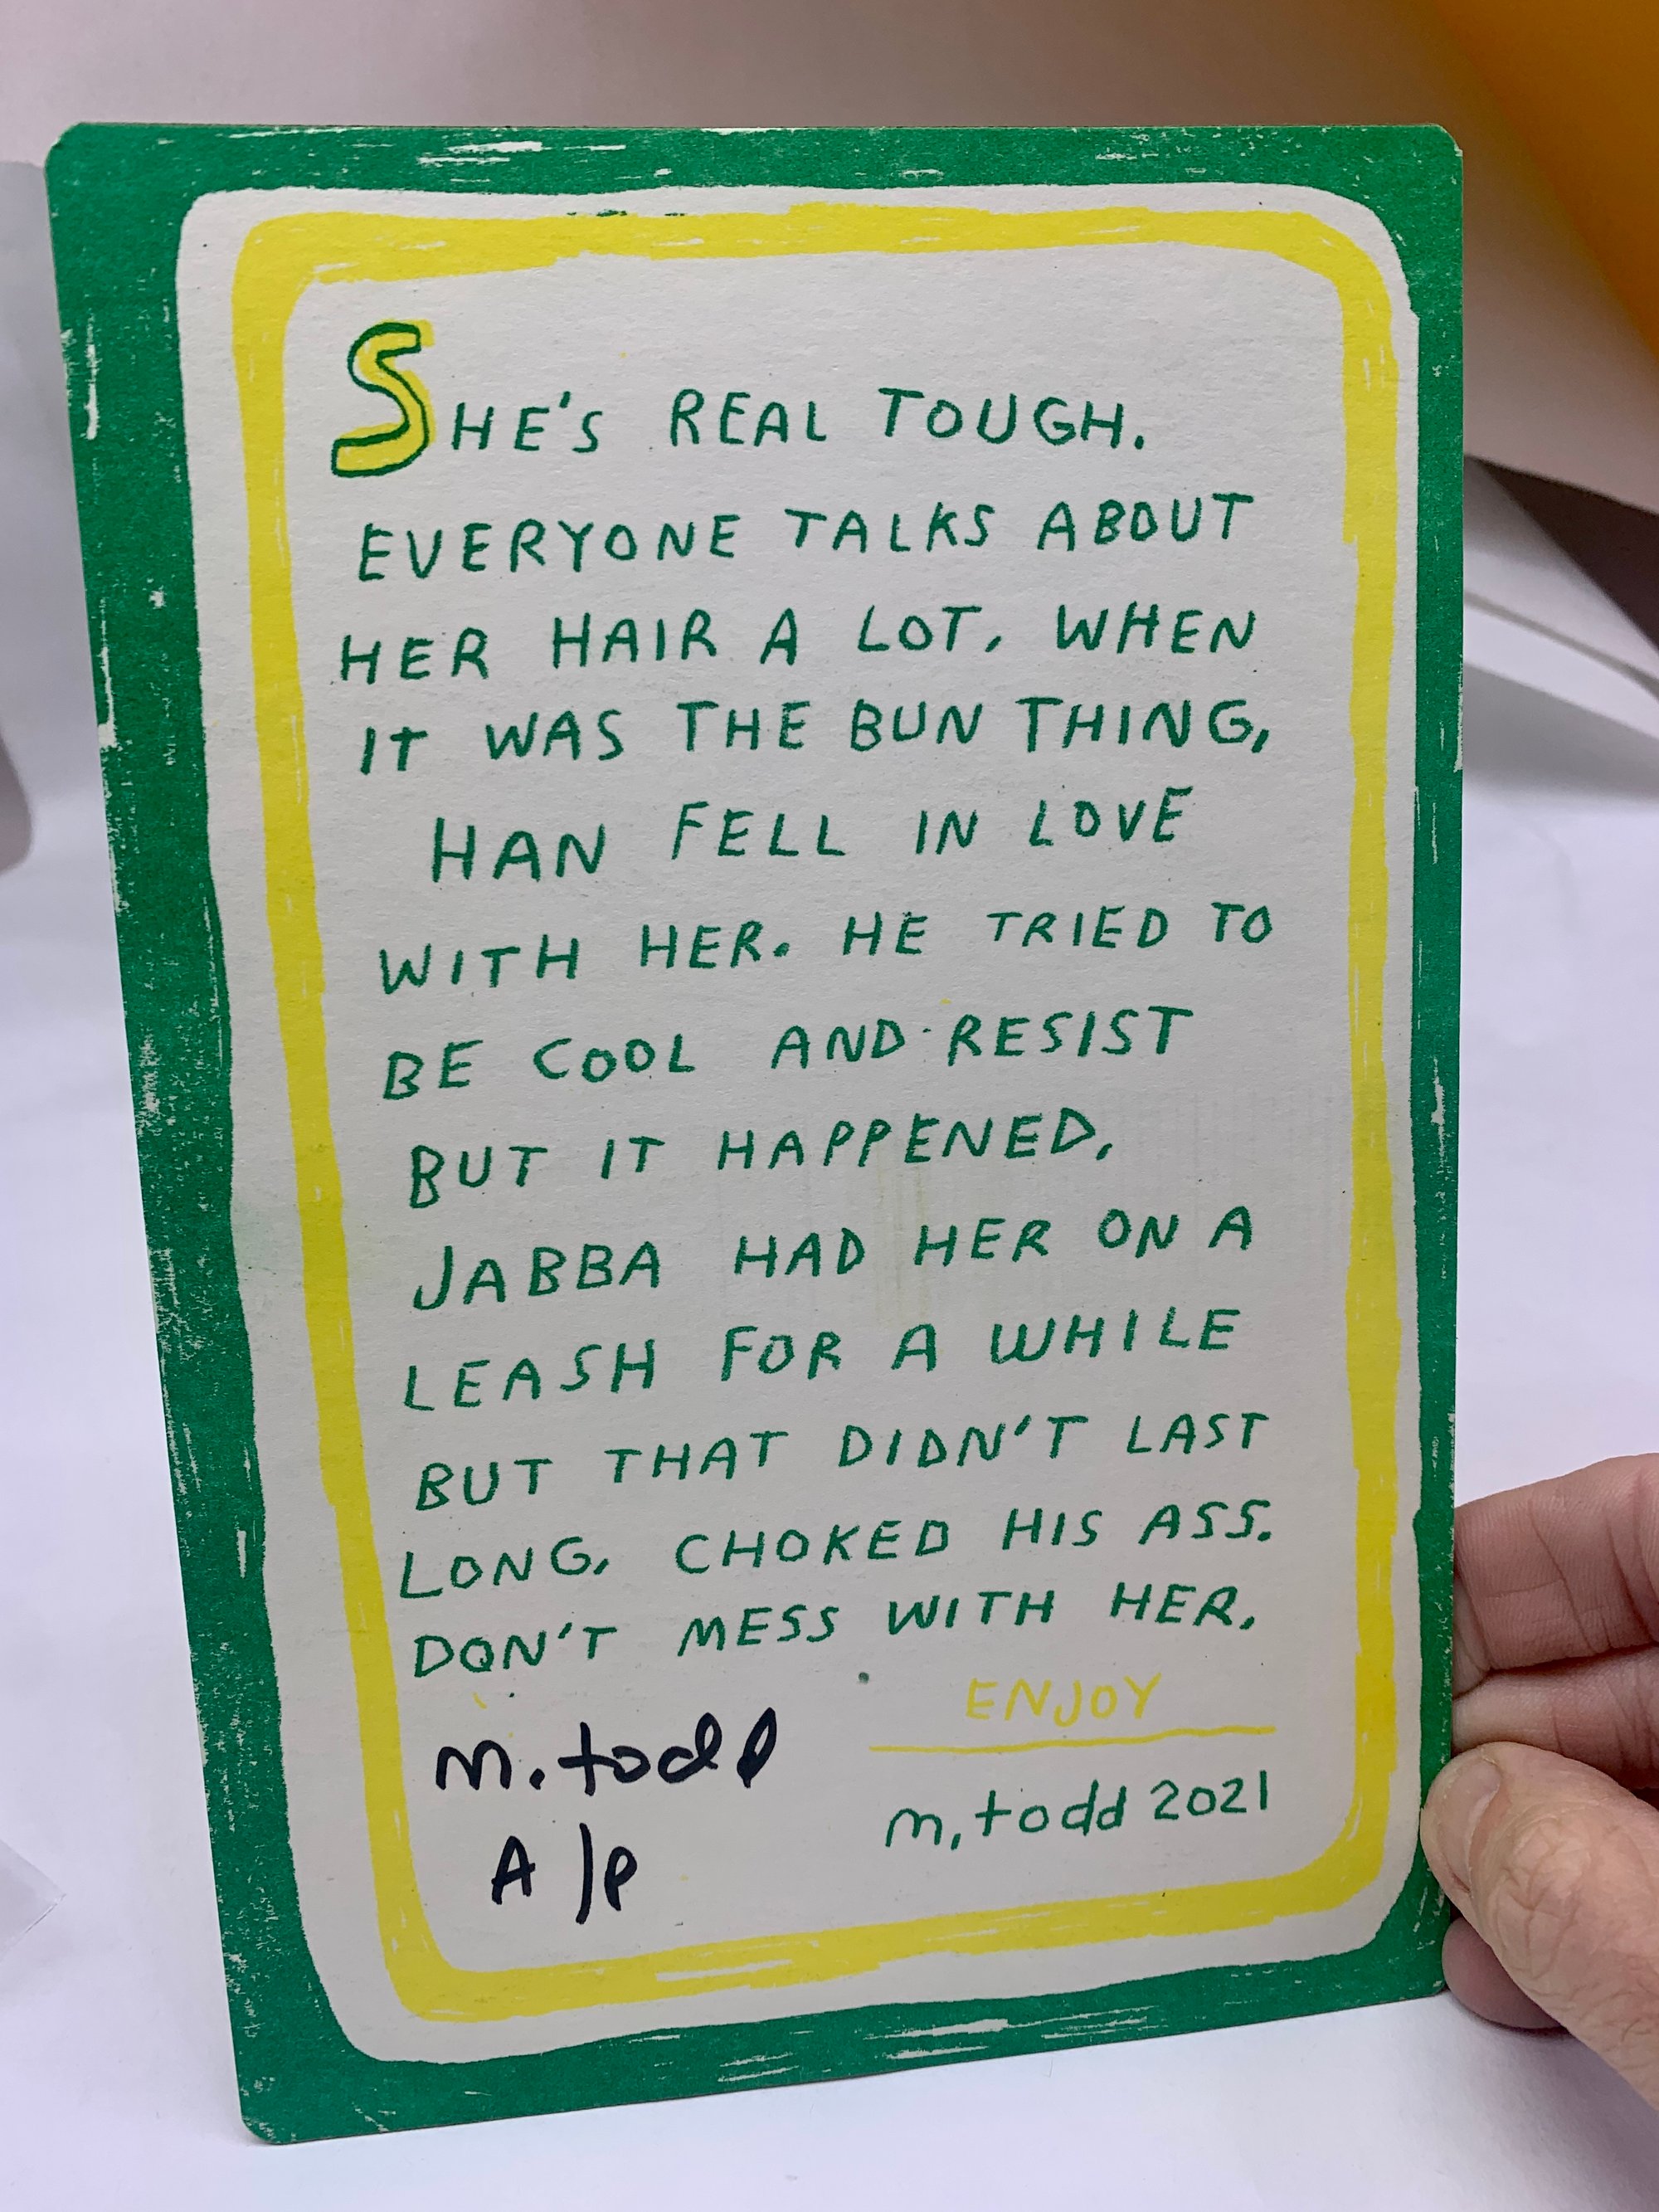 SHE'S REAL TOUGH.
EVERYONE TALKS ABOUT
HER HAIR A LOT. WHEN
IT WAS THE BUN THING,
HAN FELL IN LOVE
WITH HER. HE TRIED TO
BE COOL AND RESIST
BUT IT HAPPENED.
JABBA HAD HER ON A
LEASH FOR A WHILE
BUT THAT DIDN'T LAST
LONG. CHOKED HIS ASS.
DON'T MESS WITH HER.
ENJOY
m. todd
m. todd 2021
A/P